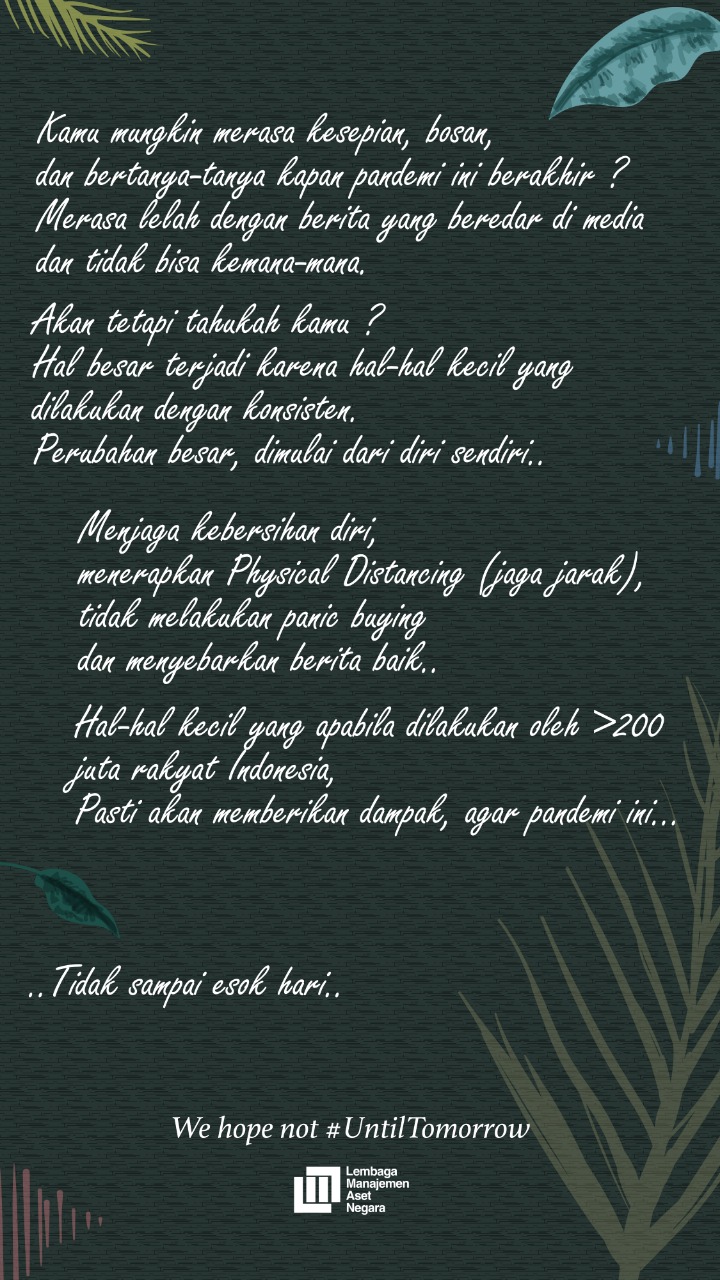 Kamu mungkin merasa kesepian, bosan,
dan bertanya-tanya kapan pandemi ini berakhir ?
Merasa lelah dengan berita yang beredar di media
dan tidak bisa kemana-mana.
Akan tetapi tahukah kamu ?
Hal besar terjadi karena hal-hal kecil yang
dilakukan dengan konsisten.
Perubahan besar, dimulai dari diri sendiri..
Menjaga kebersihan diri,
menerapkan Physical Distancing (jaga jarak),
tidak melakukan panic buying
dan menyebarkan berita baik..
Hal-hal kecil yang apabila dilakukan oleh >200
juta rakyat Indonesia,
Pasti akan memberikan dampak, agar pandemi ini...
..Tidak sampai esok hari..
We hope not #UntilTomorrow
Lembaga
Manajemen
Aset
Negara